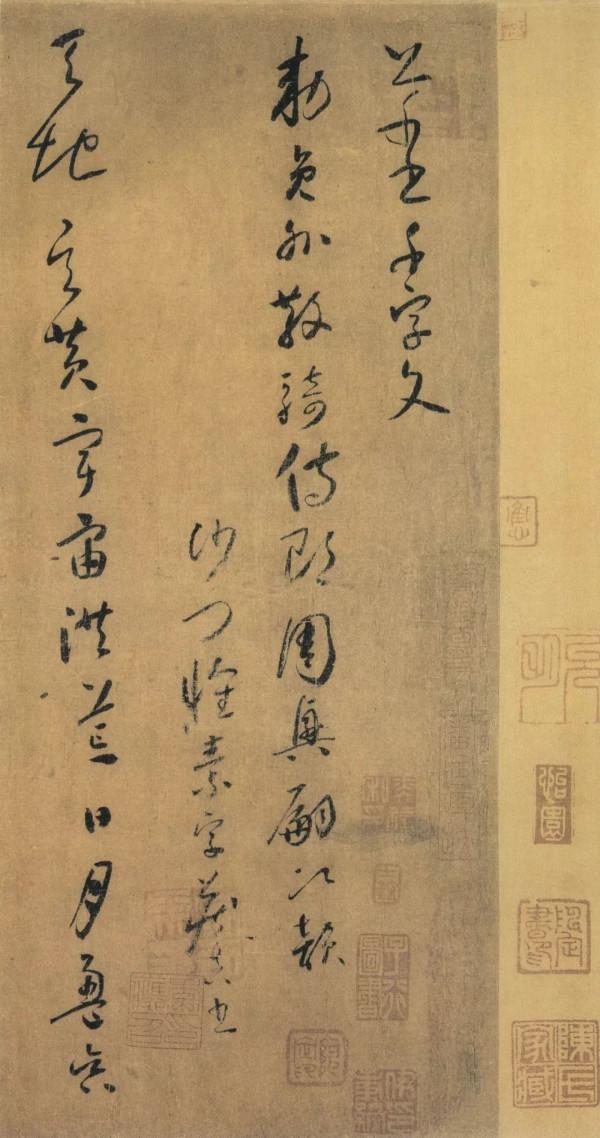 草書千字文
勅員外散騎侍郎周興嗣次韻
沙門懷素字藏真書
天地玄黃宇宙洪荒日月盈昃
怡園
陳氏家藏